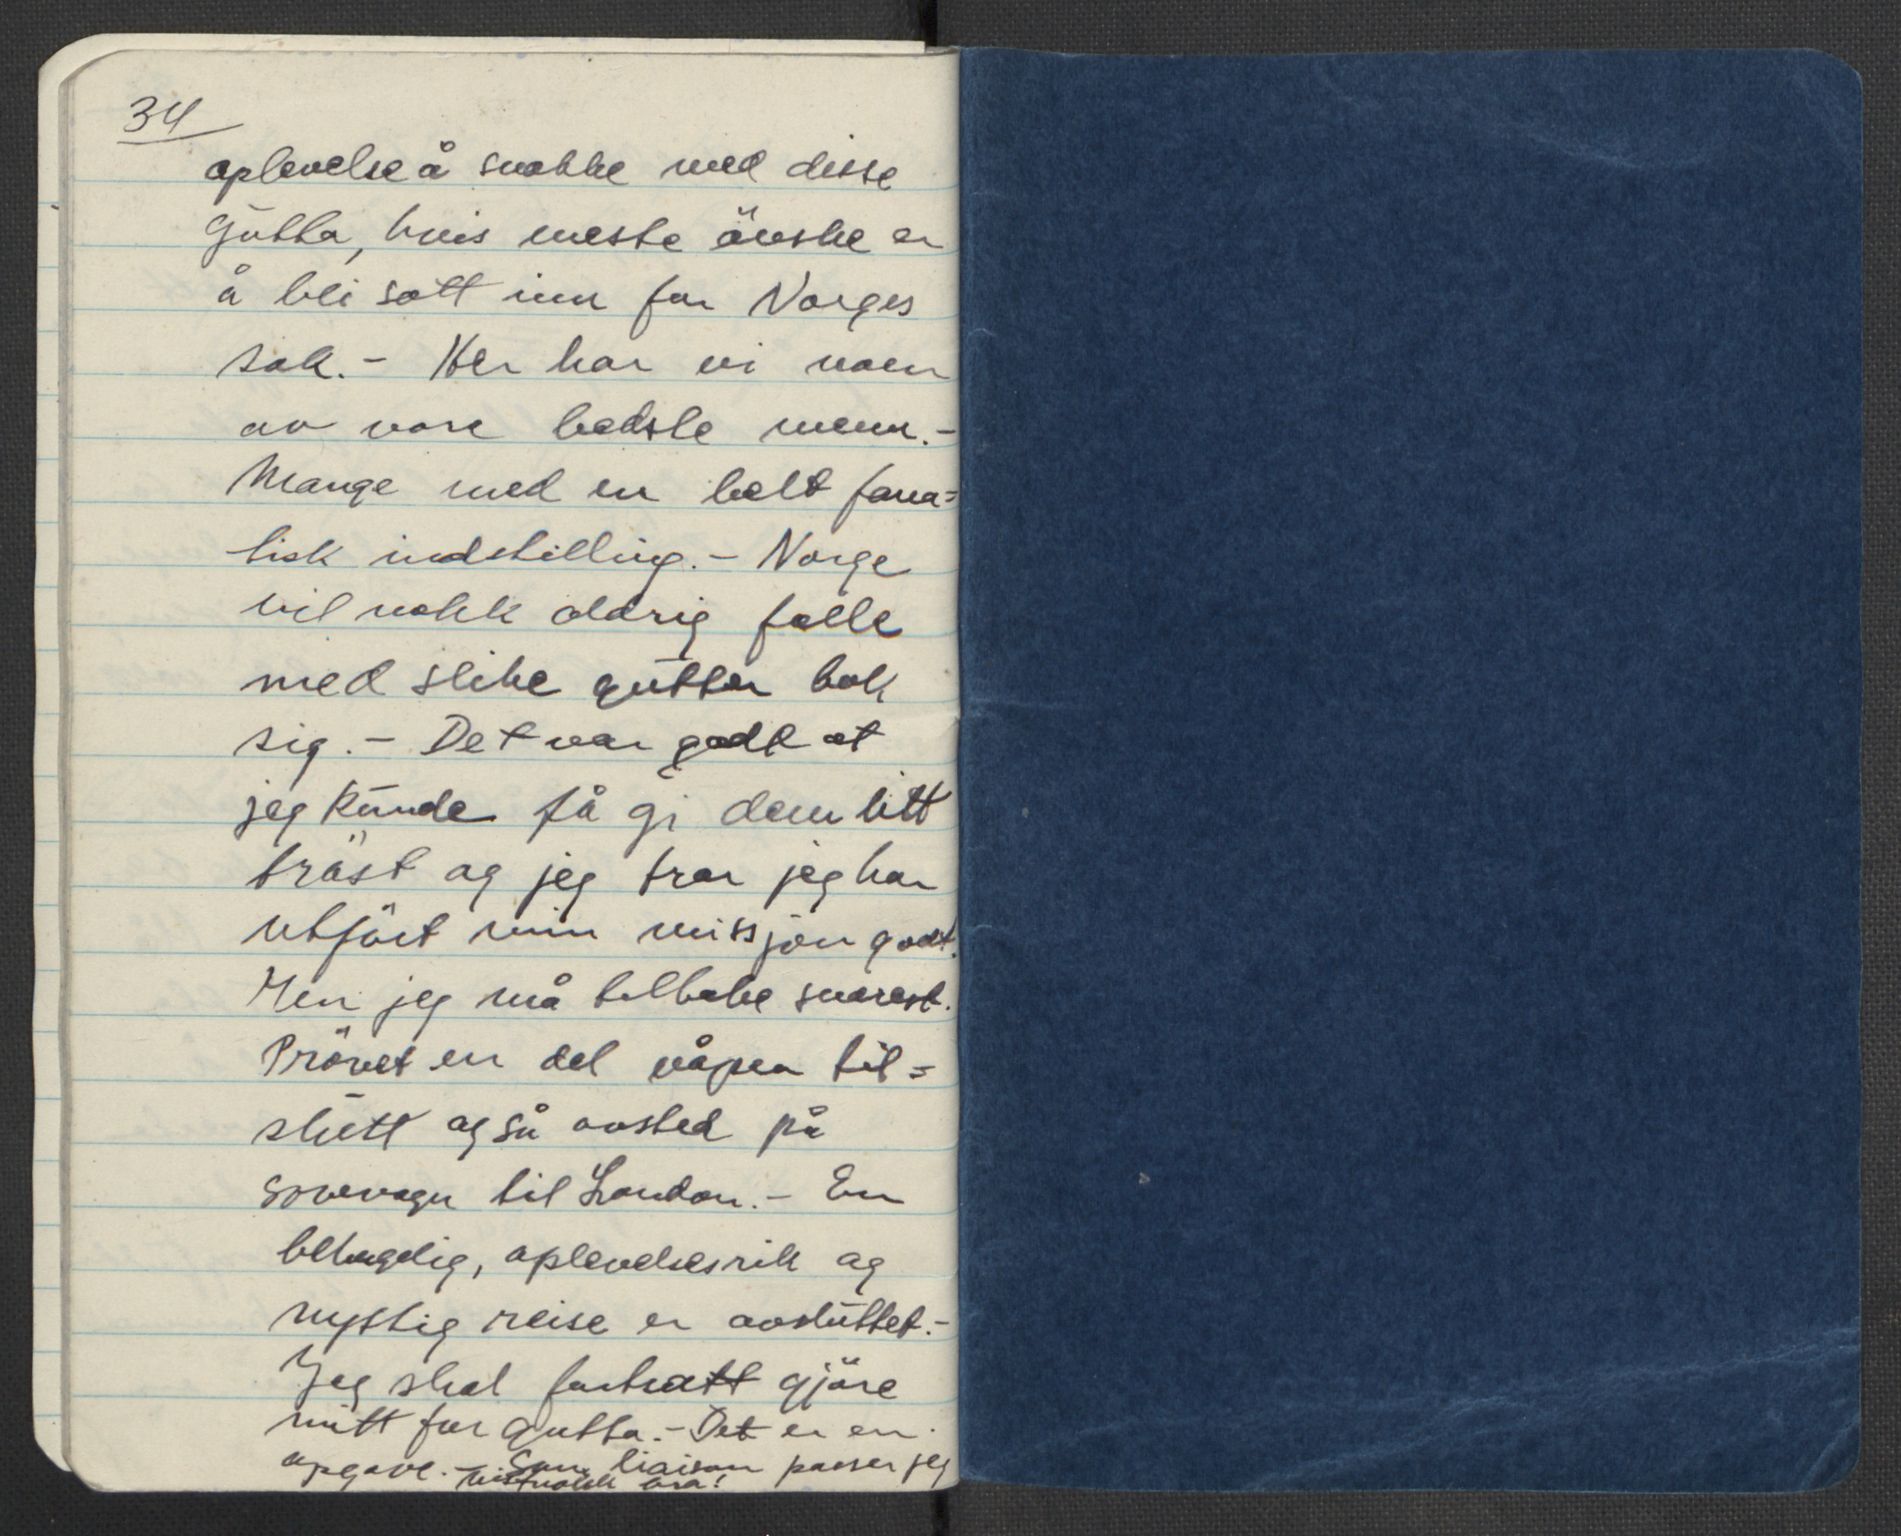 34
oplevelse å snakke med disse
gutta, hvis meste önske er
å bli satt inn for Norges
sak. - Her har vi noen
av vore bedste menn. -
Mange med en helt fana=
tisk indstilling. - Norge
vil nokk aldrig falle
med slike gutter bak
sig. - Det var godt at
jeg kunde få gi dem litt
tröst og jeg tror jeg har
utfört min missjon godt.
Men jeg må tilbake snarest.
Prövet en del våpen til=
slutt og så avsted på
sovevogn til London. - En
behagelig, oplevelsesrik og
nyttig reise er avsluttet. -
Jeg skal fortsatt gjöre
mitt for gutta. - Det er en
opgave. - Som liaison passer jeg
visst nokk bra!